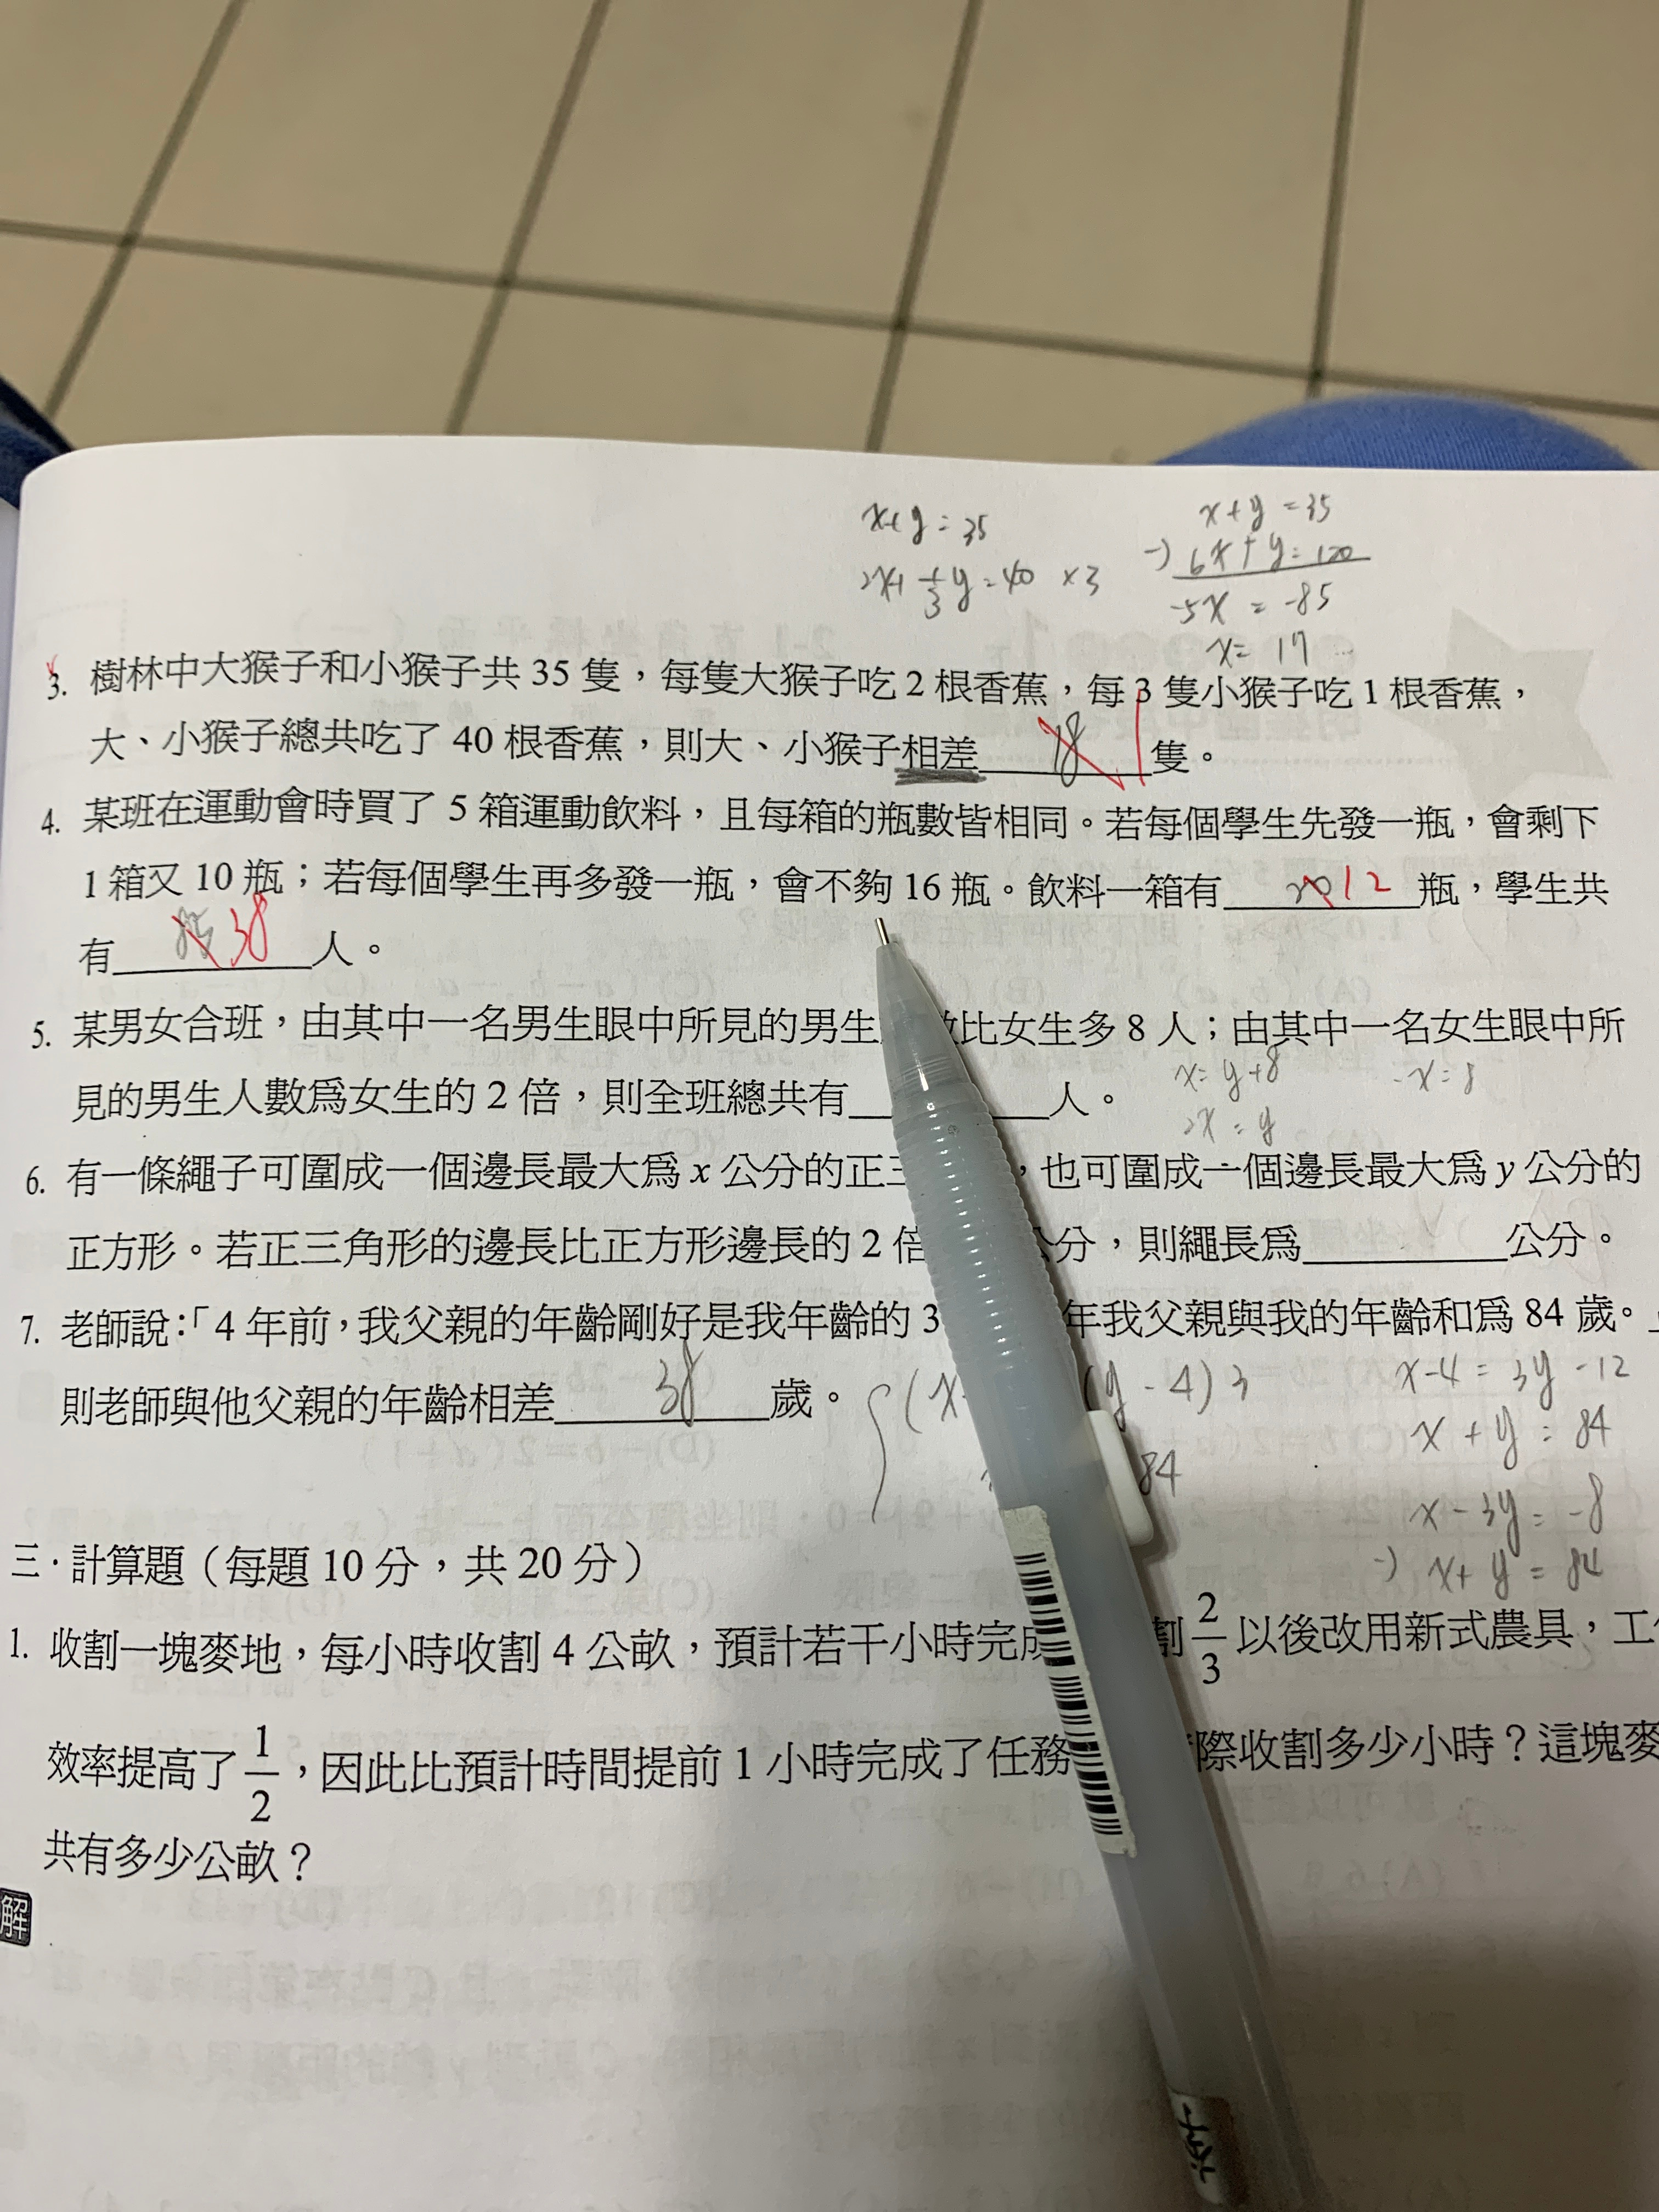 x+y=35
2x+1/3y=40 ×3
x+y=35
-) 6x+y=120
-5x=-85
x=17
3. 樹林中大猴子和小猴子共 35 隻，每隻大猴子吃 2 根香蕉，每 3 隻小猴子吃 1 根香蕉，
大、小猴子總共吃了 40 根香蕉，則大、小猴子相差 18 1 隻。
4. 某班在運動會時買了 5 箱運動飲料，且每箱的瓶數皆相同。若每個學生先發一瓶，會剩下
1 箱又 10 瓶；若每個學生再多發一瓶，會不夠 16 瓶。飲料一箱有 20 12 瓶，學生共
有 85 38 人。
5. 某男女合班，由其中一名男生眼中所見的男生 比女生多 8 人；由其中一名女生眼中所
見的男生人數為女生的 2 倍，則全班總共有 人。
x=y+8
2x=y
-x=8
6. 有一條繩子可圍成一個邊長最大為 x 公分的正三 ，也可圍成一個邊長最大為 y 公分的
正方形。若正三角形的邊長比正方形邊長的 2 倍 公分，則繩長為 公分。
7. 老師說：「4 年前，我父親的年齡剛好是我年齡的 3 年我父親與我的年齡和為 84 歲。
則老師與他父親的年齡相差 38 歲。
(x (y-4)3
84
x-4=3y-12
x+y=84
x-3y=-8
-) x+y=84
三·計算題（每題 10 分，共 20 分）
1. 收割一塊麥地，每小時收割 4 公畝，預計若干小時完成 割 2/3 以後改用新式農具，工
效率提高了 1/2，因此比預計時間提前 1 小時完成了任務 際收割多少小時？這塊麥
共有多少公畝？
解